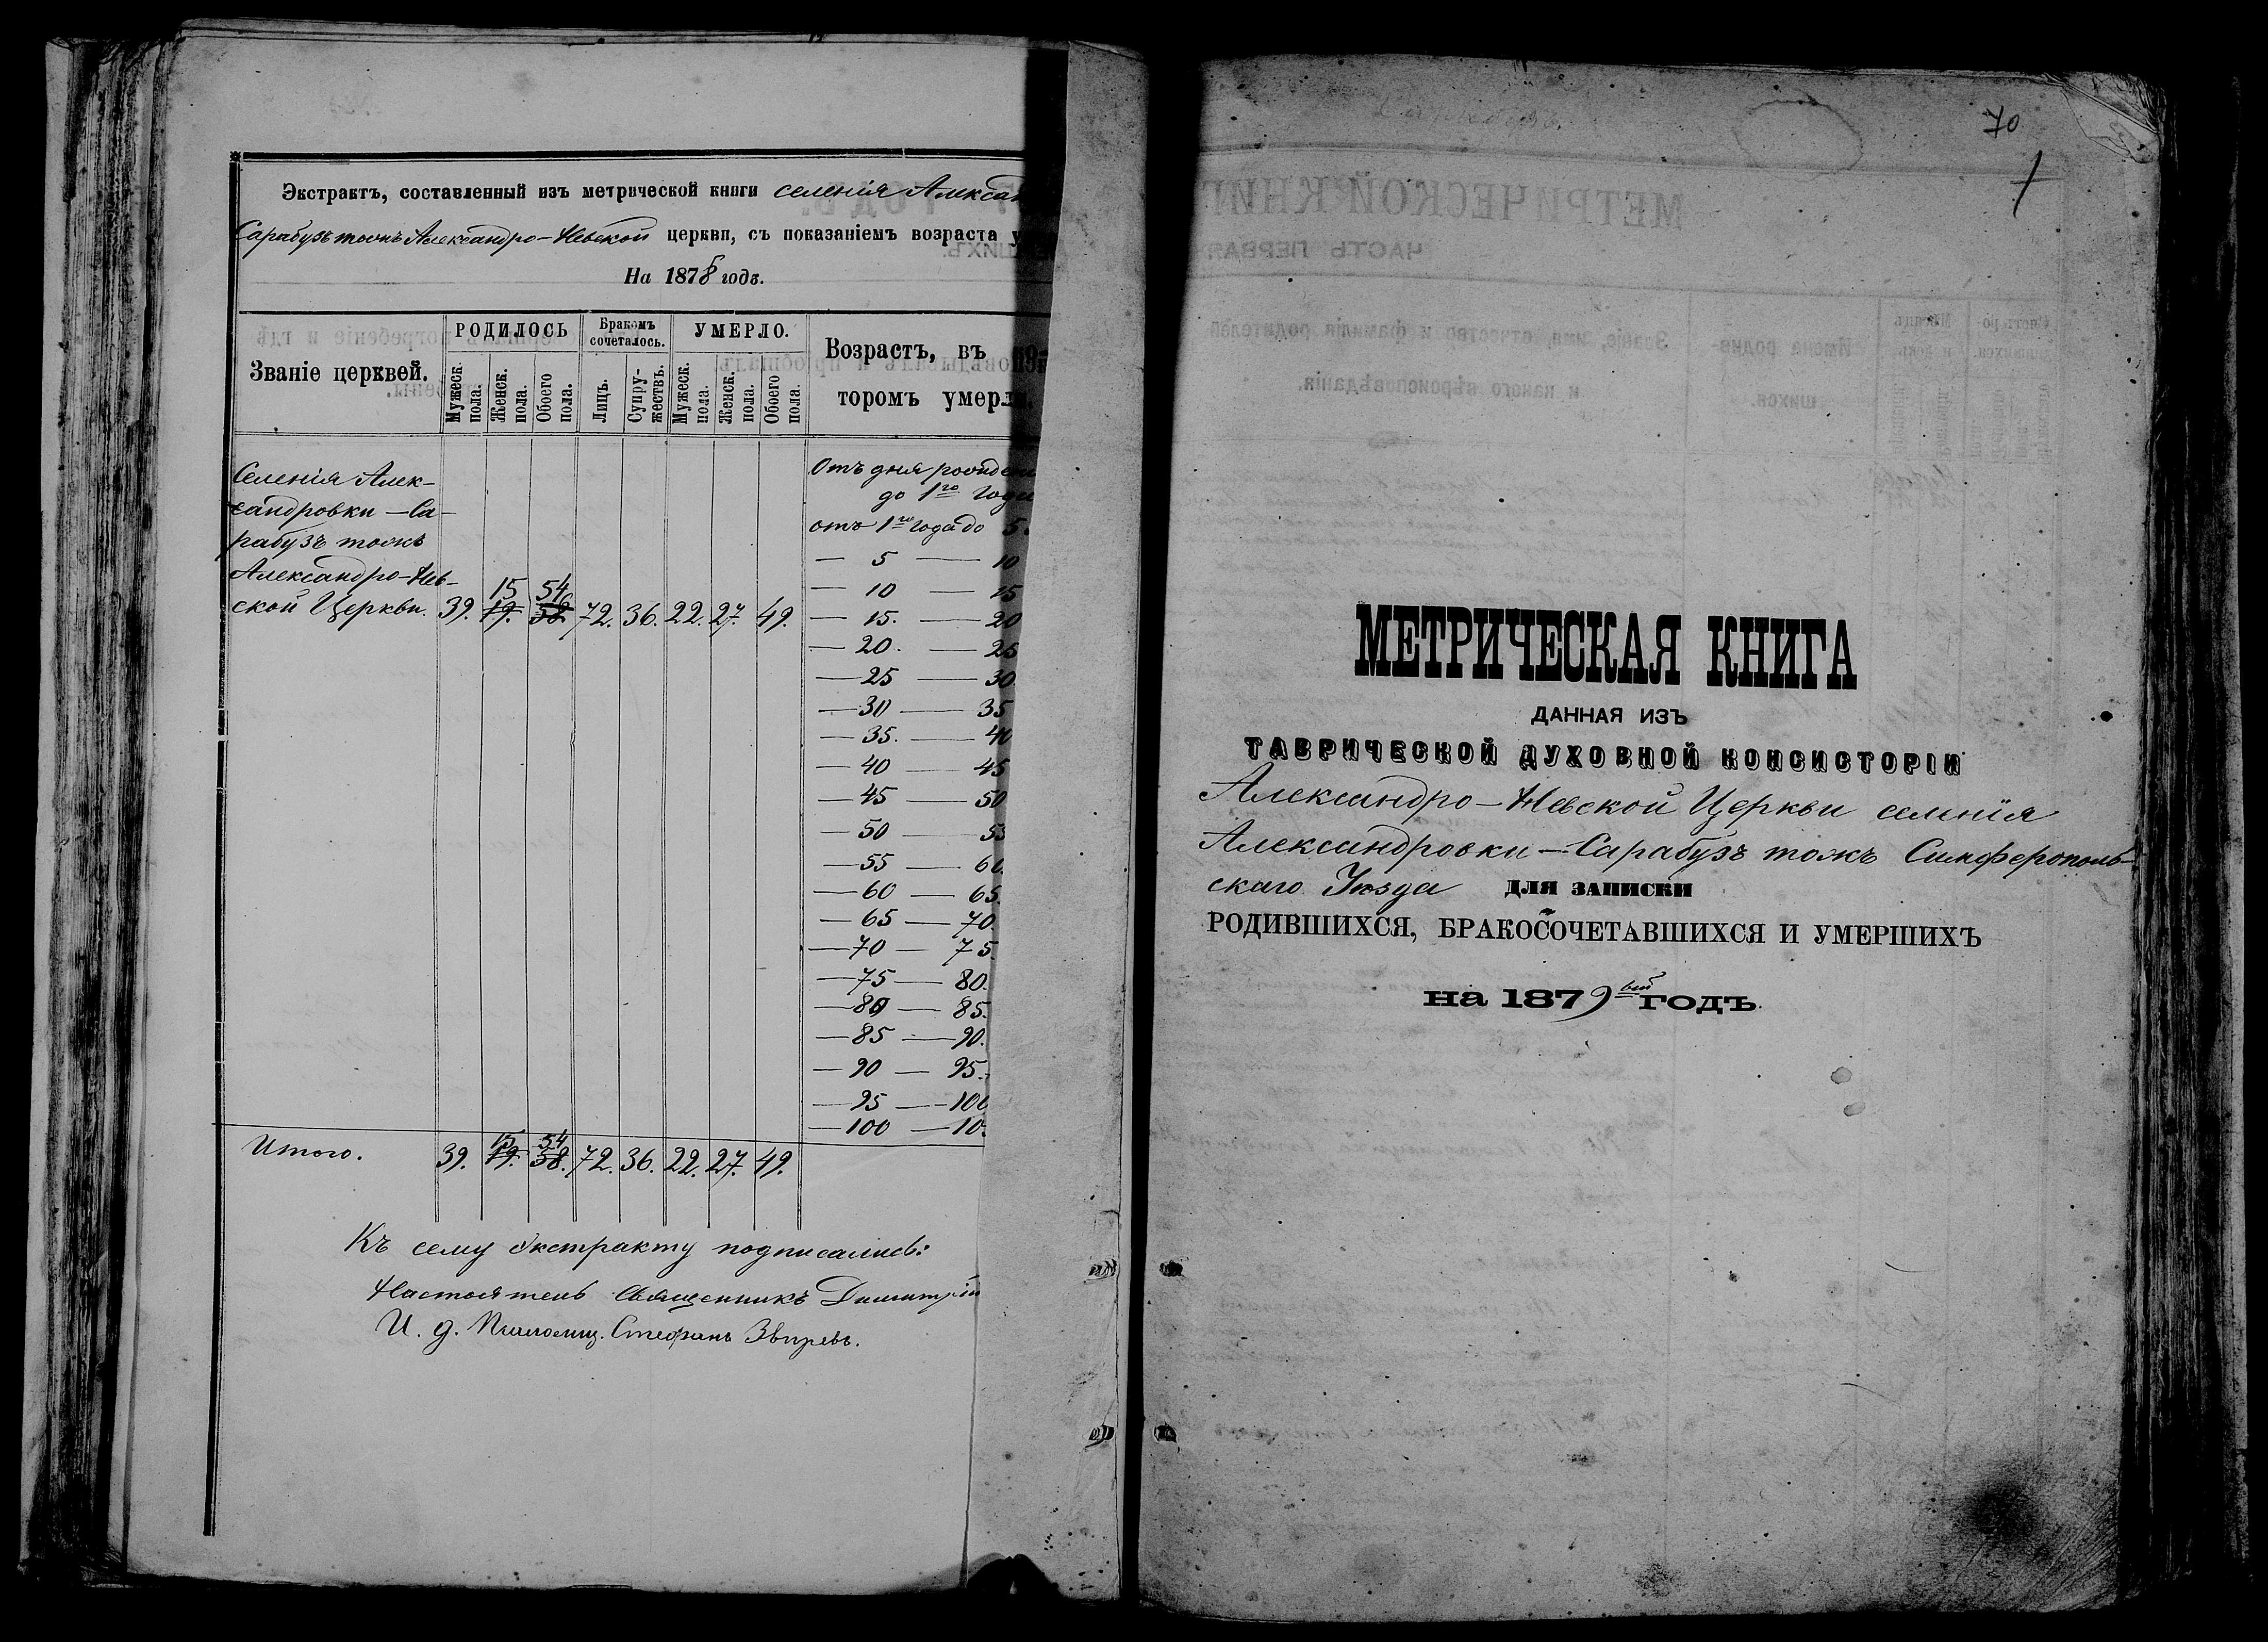 Экстрактъ, составленный изъ метрической книги селенія Алексан
Сарабузъ тожъ Александро-Невской церкви, съ показаніемъ возраста у
На 1878 годъ.
Званіе церквей.
РОДИЛОСЬ
Бракомъ сочеталось.
УМЕРЛО.
Возрастъ, въ
торомъ умерли.
Мужеск. пола.
Женск. пола.
Обоего пола.
Лицъ.
Супру-жествъ.
Мужеск. пола.
Женск. пола.
Обоего пола.
Селенія Алек-
сандровки-Са-
рабузъ тожъ
Александро-Нев-
15 54
ской Церкви. 39. 19. 58. 72. 36. 22. 27. 49.
Отъ дня рожден
до 1го года
отъ 1го года до 5.
— 5 — 10
— 10 — 15
— 15. — 20
— 20. — 25
— 25 — 30
— 30 — 35
— 35. — 40
— 40 — 45
— 45 — 50
— 50 — 55
— 55 — 60.
— 60 — 65.
— 65 — 70.
— 70 — 75.
— 75 — 80.
— 80 — 85.
— 85 — 90.
— 90 — 95.
— 95 — 100
— 100 — 10
15 54
Итого. 39. 19. 58. 72. 36. 22. 27. 49.
Къ сему экстракту подписались:
Настоятель Священникъ Димитрій
И. д. Псаломщ. Стефанъ Звѣревъ.
70
МЕТРИЧЕСКАЯ КНИГА
ДАННАЯ ИЗЪ
ТАВРИЧЕСКОЙ ДУХОВНОЙ КОНСИСТОРІИ
Александро-Невской Церкви селенія
Александровки-Сарабузъ тожъ Симферополь-
скаго Уѣзда ДЛЯ ЗАПИСКИ
РОДИВШИХСЯ, БРАКОСОЧЕТАВШИХСЯ И УМЕРШИХЪ
на 1879вый годъ.